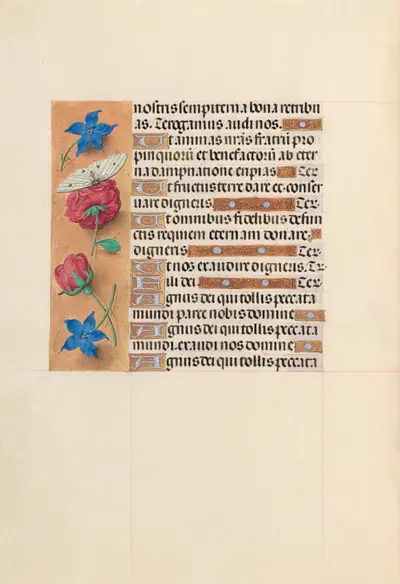 nostris sempiterna bona retribu
as. Te rogamus audi nos.
Ut animas nr̄as fratrū pro
pinquorū et benefactorū ab eter
na dampnatione eripias Ter.
Ut fructus terre dare et conser
vare digneris. Ter.
Ut omnibus fidelibus defun
ctis requiem eternam donare
digneris Ter.
Ut nos exaudire digneris. Ter.
Fili dei. Ter.
Agnus dei qui tollis peccata
mundi parce nobis domine
Agnus dei qui tollis peccata
mundi. exaudi nos domine
Agnus dei qui tollis peccata